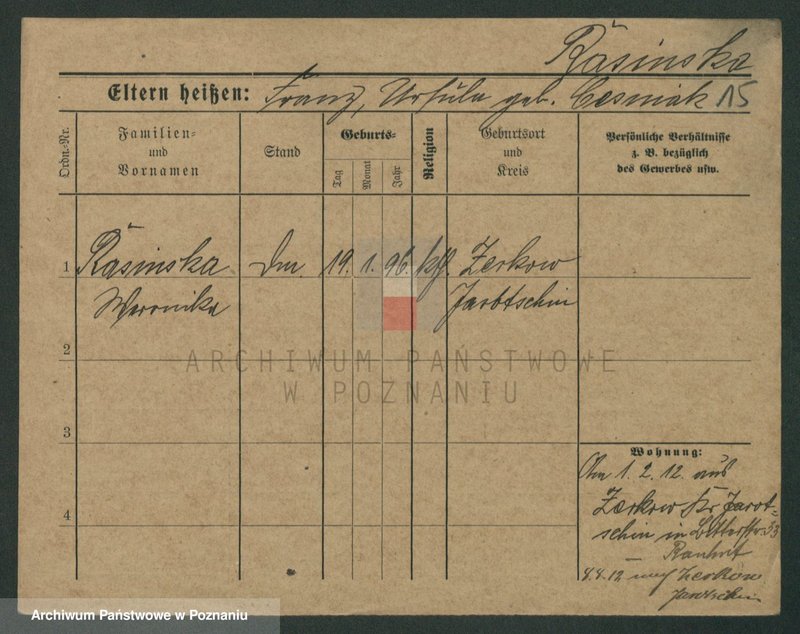 Rasinska
Eltern heißen: Franz, Ursula geb. Cesniak 15
Ordn.-Nr.
Familien- und Vornamen
Stand
Geburts-
Tag
Monat
Jahr
Religion
Geburtsort und Kreis
Persönliche Verhältnisse
z. B. bezüglich
des Gewerbes usw.
1 Rasinska Dm. 19. 1. 96. kth. Zerkow
Weronika Jarotschin
2
ARCHIWUM PAŃSTWOWE
W POZNANIU
3
Wohnung:
Am 1. 2. 12. aus
Zerkow Kr. Jarot-
schin in 33
4
4.4.12 nach Zerkow
Jarotschin
Archiwum Państwowe w Poznaniu